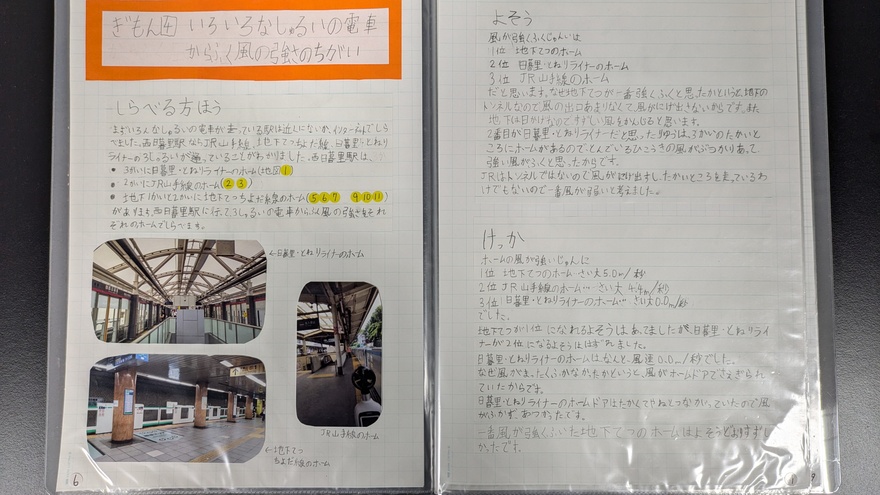 ぎもん④ いろいろなしゅるいの電車
からふく風の強さのちがい
しらべる方ほう
まずいろんなしゅるいの電車が走っている駅は近くにないか、インターネットでしら
べました。西日暮里駅ならJR山手線、地下てつちよだ線、日暮里・とねり
ライナーの3しゅるいが通っていることがわかりました。西日暮里駅は、
• 3かいに日暮里・とねりライナーのホーム(地図①)
• 2かいにJR山手線のホーム(②③)
• 地下1かいと2かいに地下てつちよだ線のホーム(⑤⑥⑦ ⑨⑩⑪)
があります。西日暮里駅に行って3しゅるいの電車からふく風の強さをそれ
ぞれのホームでしらべます。
←日暮里・とねりライナーのホーム
JR山手線のホーム
←地下てつ
ちよだ線のホーム
⑥
よそう
風が強くふくじゅんいは
1位 地下てつのホーム
2位 日暮里・とねりライナーのホーム
3位 JR山手線のホーム
だと思います。なぜ地下てつが一番強くふくと思ったかというと、地下の
トンネルなので風の出口があまりなくて、風がにげ出さないからです。また
地下は日かげなのですずしい風をかんじると思います。
2番目が日暮里・とねりライナーだと思ったりゆうは、3かいのたかいと
ころにホームがあるので、とんでいるひこうきの風がぶつかりあって
強い風がふくと思ったからです。
JRはトンネルではないので風がにげ出すし、たかいところを走っているわ
けでもないので一番風が弱いと考えました。
けっか
ホームの風が強いじゅんに
1位 地下てつのホーム…さい大5.0m/秒
2位 JR山手線のホーム…さい大 4.4m/秒
3位 日暮里・とねりライナーのホーム…さい大0.0m/秒
でした。
地下てつが1位になれるよそうはあたりましたが、日暮里・とねりライ
ナーが2位になるよそうははずれました。
日暮里・とねりライナーのホームはなんと、風速0.0m/秒でした。
なぜ風がまったくふかなかったかというと、風がホームドアでさえぎられ
ていたからです。
日暮里・とねりライナーのホームドアはたかくてやねとつながっていたので風
がふかず、あつかったです。
一番風が強くふいた地下てつのホームはよそうどおりすずし
かったです。